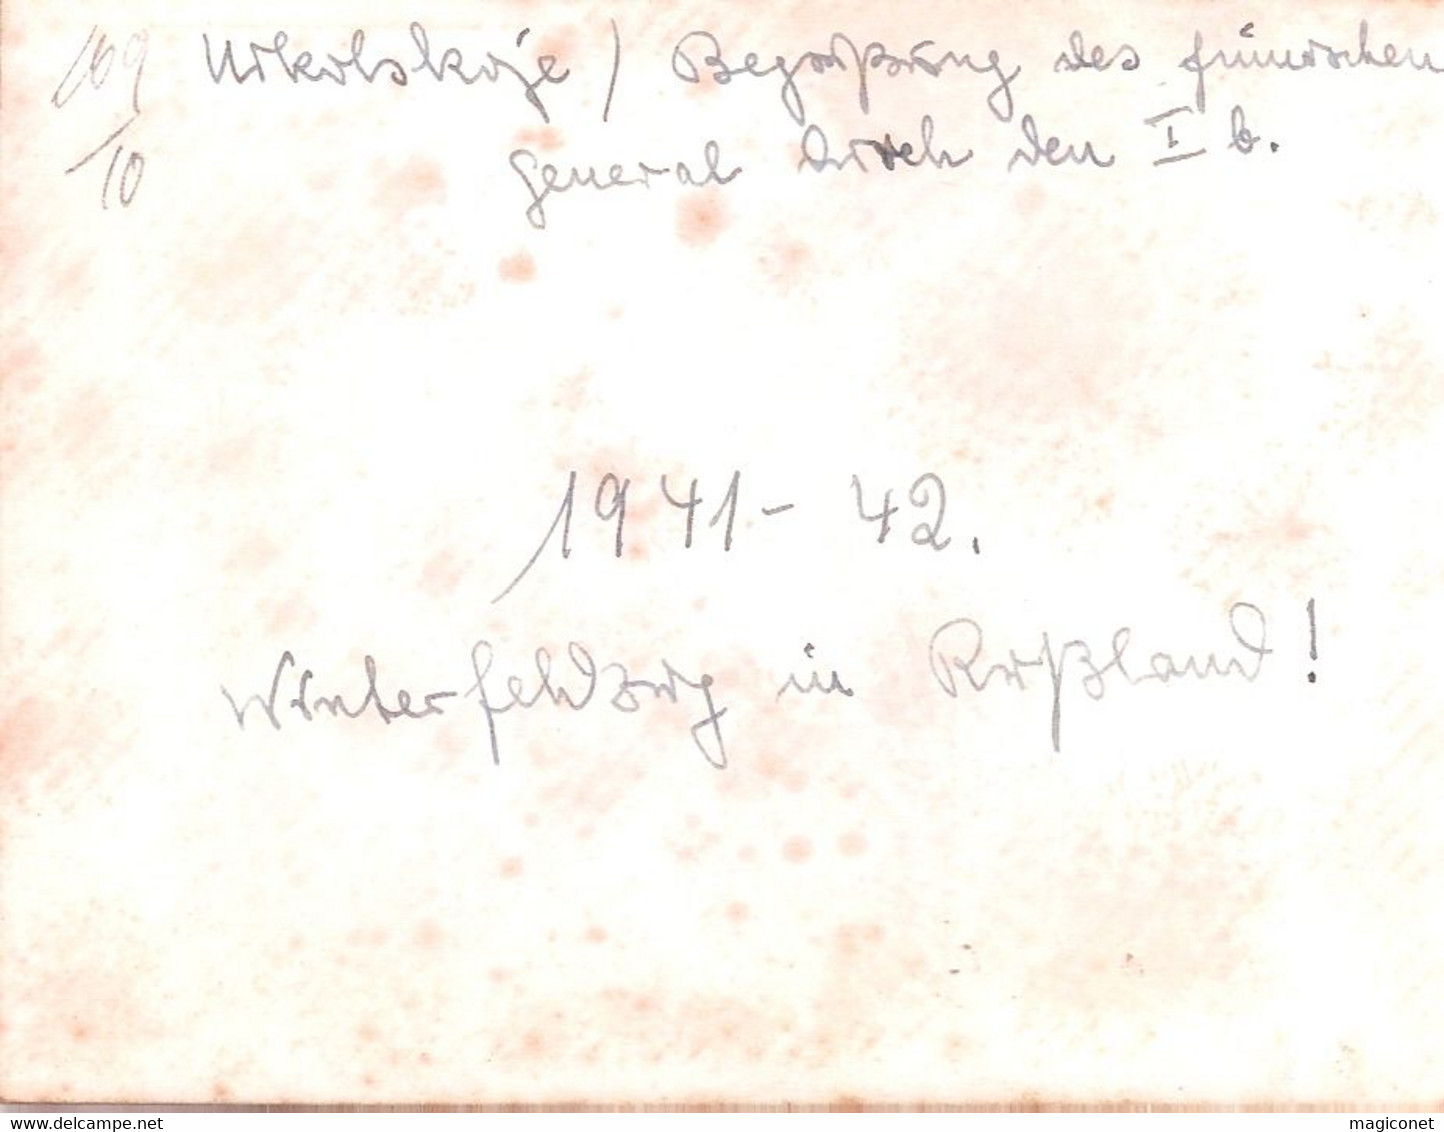 109/10 Nikolskoje / Begrüßung des finnischen
General durch den I b.
1941 - 42.
Winterfeldzug in Rußland!
delcampe.net
magiconet